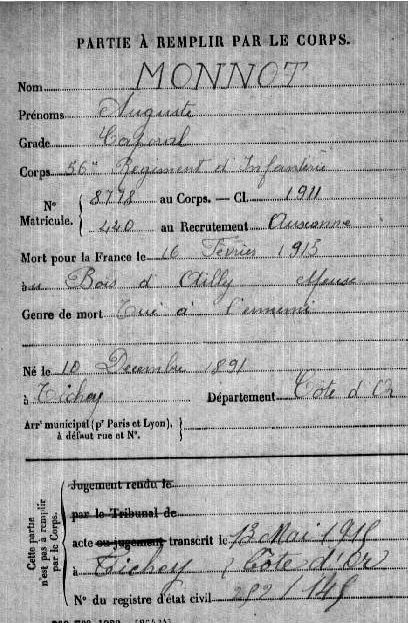 PARTIE À REMPLIR PAR LE CORPS.
Nom MONNOT
Prénoms Auguste
Grade Caporal
Corps 56e Régiment d'Infanterie
N° Matricule. { 8778 au Corps. — Cl. 1911
440 au Recrutement Auxonne
Mort pour la France le 16 Février 1915
à au Bois d'Ailly Meuse
Genre de mort Tué à l'ennemi
Né le 10 Décembre 1891
à Tichey Département Côte d'Or
Arrt municipal (pr Paris et Lyon), à défaut rue et N°. }
Cette partie n'est pas à remplir par le Corps.
Jugement rendu le
par le Tribunal de
acte ou jugement transcrit le 13 Mai 1915
à Tichey (Côte d'Or)
N° du registre d'état civil 292/145